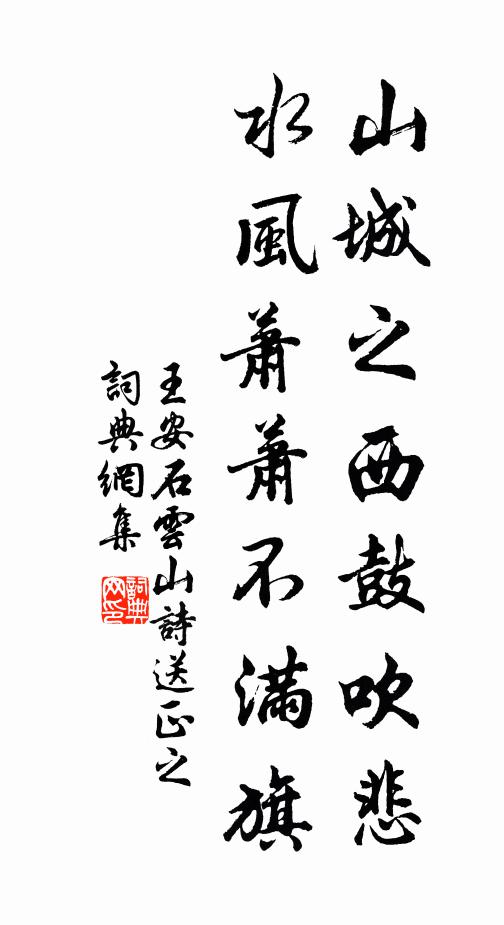 山城之西鼓吹悲
水風蕭蕭不滿旗
王安石雲山詩送正之
詞典網集
詞典網印